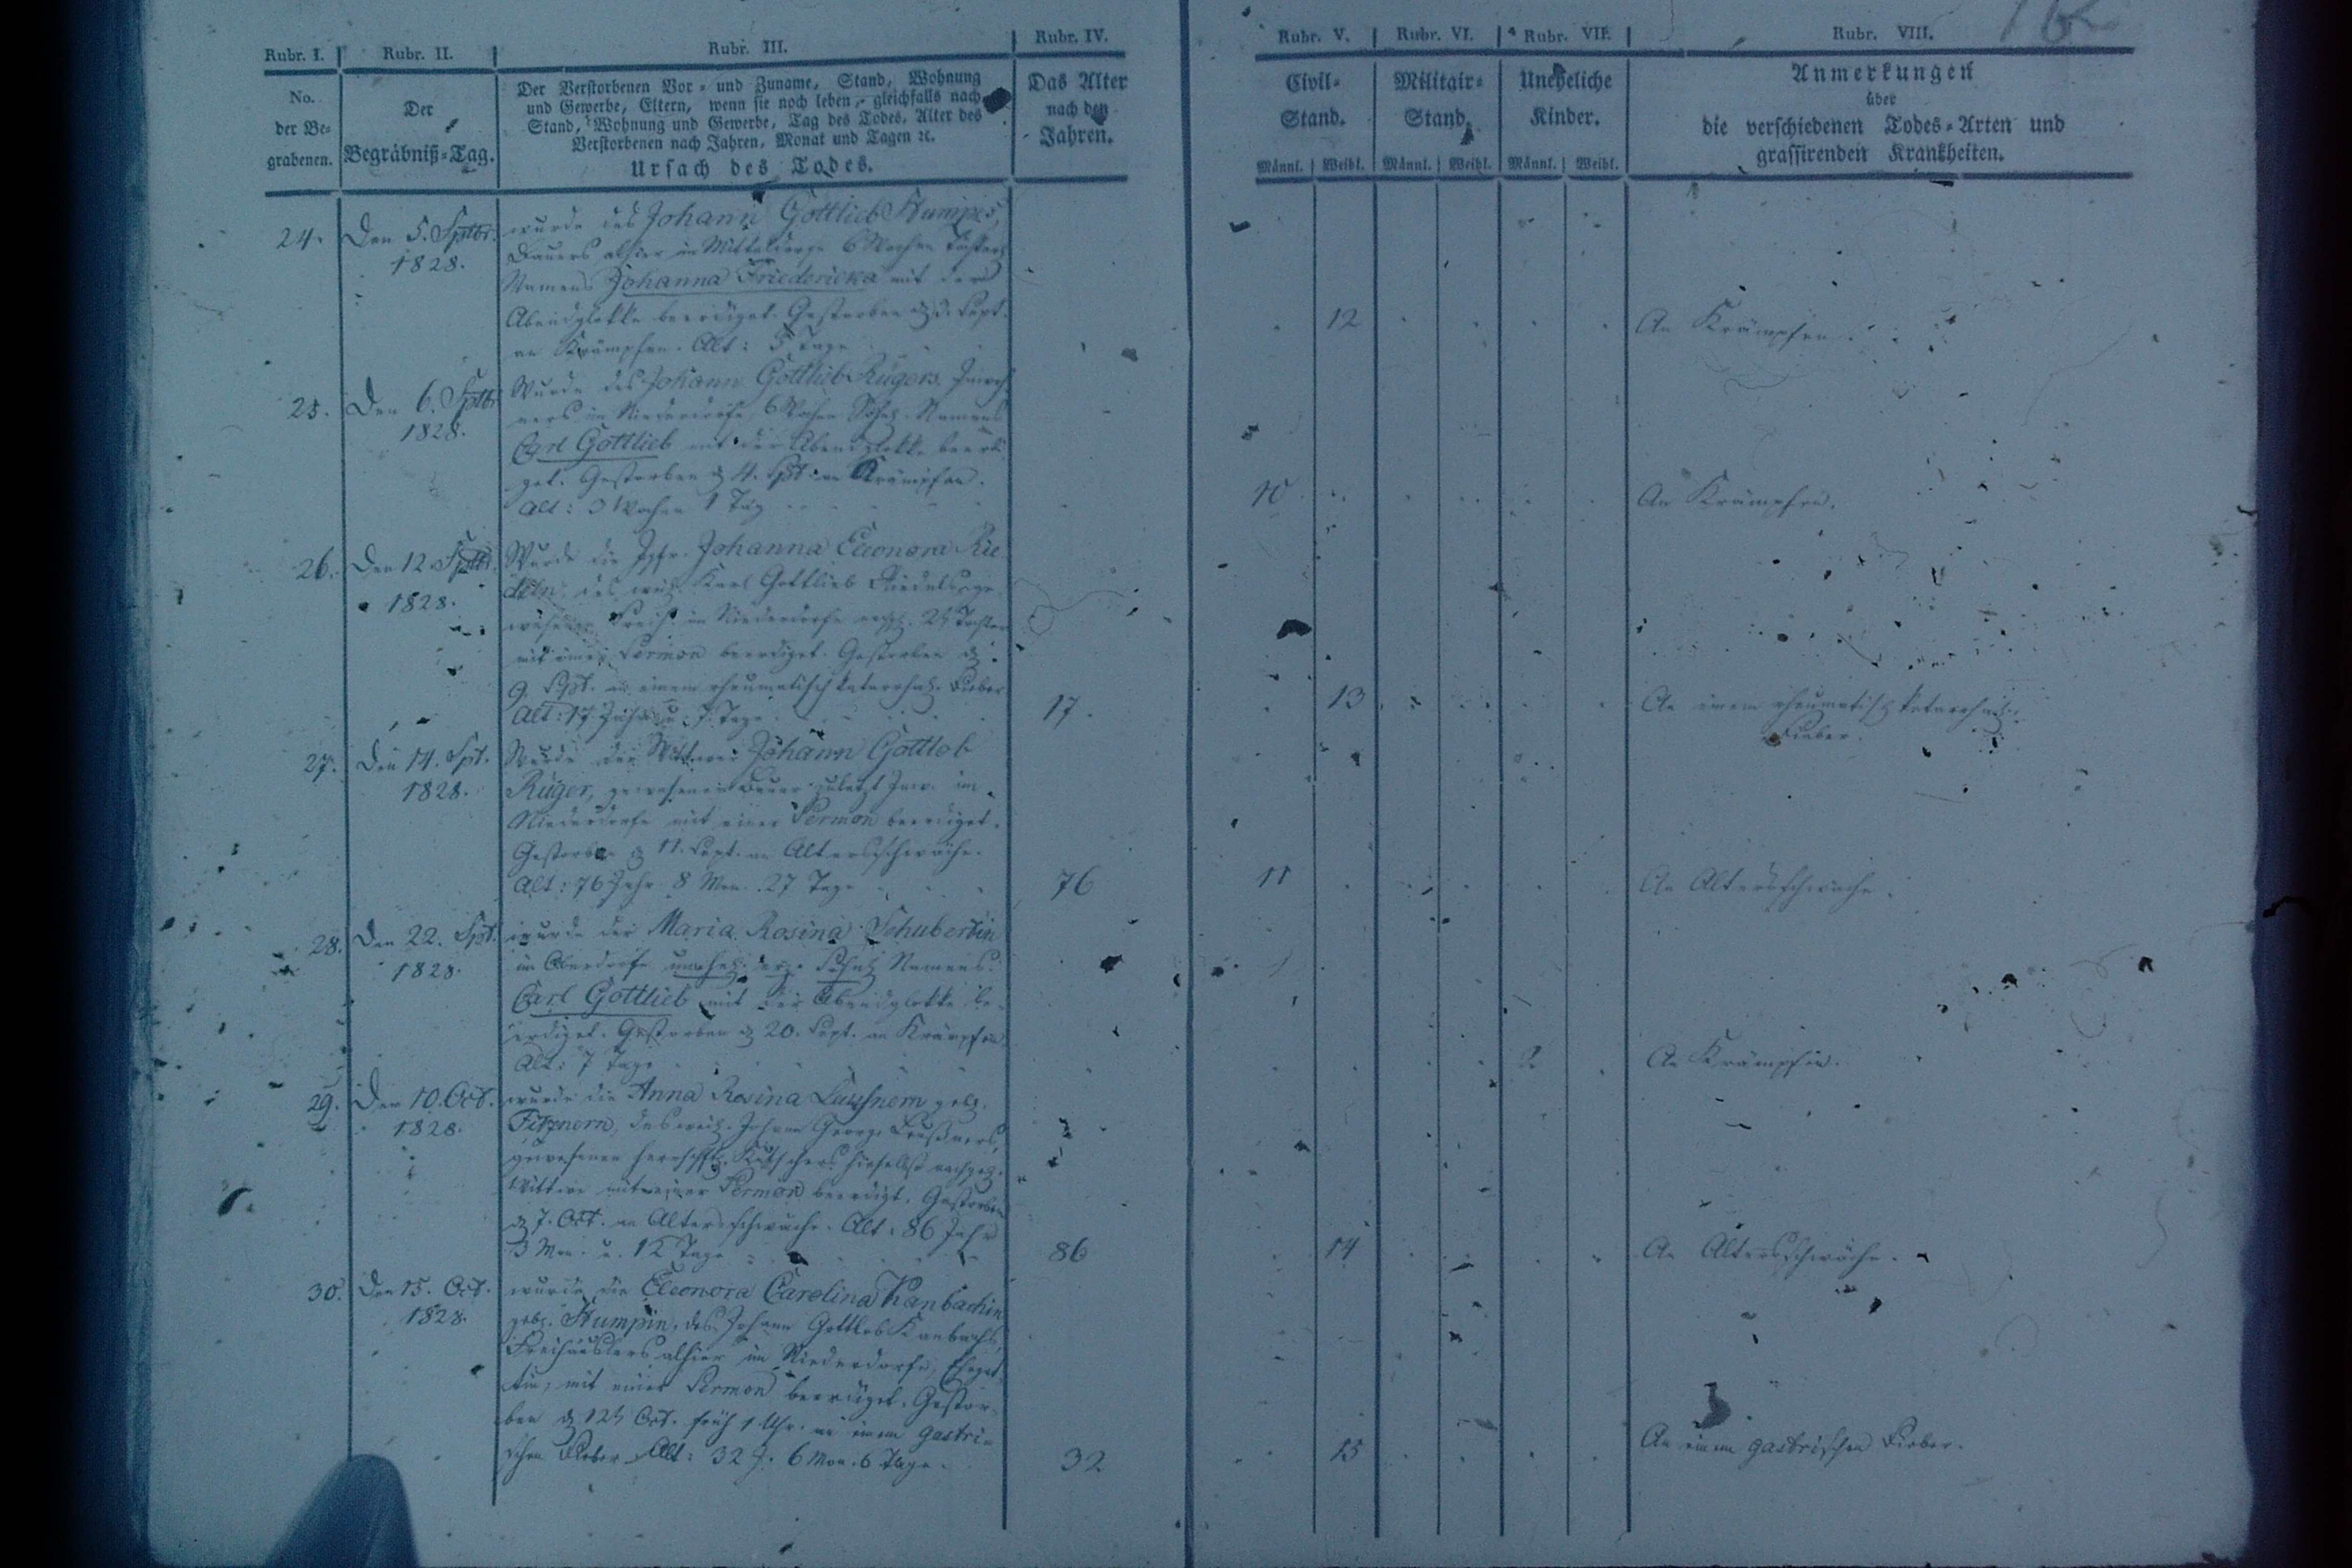 Rubr. I.
Rubr. II.
Rubr. III.
Rubr. IV.
Rubr. V.
Rubr. VI.
Rubr. VII.
Rubr. VIII.
No.
der Be-
grabenen.
Der
Begräbniß-Tag.
Der Verstorbenen Vor- und Zuname, Stand, Wohnung
und Gewerbe, Eltern, wenn sie noch leben, gleichfalls nach
Stand, Wohnung und Gewerbe, Tag des Todes, Alter des
Verstorbenen nach Jahren, Monat und Tagen ꝛc.
Ursach des Todes.
Das Alter
nach den
Jahren.
Civil-
Stand.
Männl. Weibl.
Militair-
Stand.
Männl. Weibl.
Uneheliche
Kinder.
Männl. Weibl.
Anmerkungen
über
die verschiedenen Todes-Arten und
grassirenden Krankheiten.
24.
Den 5. Sptbr.
1828.
wurde des Johann Gottlieb Stumpes,
Bauers alhier im Mitteldorfe
Namens Johanna Friedericka mit der
Abendglokke beerdiget. Gestorben d. 3. Sept.
an Krämpfen. Alt: 5 Tage
12
An Krämpfen.
25.
Den 6. Sptbr.
1828.
Wurde des Johann Gottlieb Rügers, Inwoh-
ners im Niederdorfe, Namens
Carl Gottlieb mit der Abendglokke beerdi-
get. Gestorben d. 4. Spt. an Krämpfen.
Alt: 3 Wochen 1 Tag
10
An Krämpfen.
26.
Den 12. Sptbr.
1828.
Wurde die Jgfr. Johanna Eleonora Rie-
deln, des weil. Karl Gottlieb Riedels, ge-
wesenen im Niederdorfe Tochter
mit einer Sermon beerdiget. Gestorben d.
9. Spt. an einem rheumatisch katarrhal. Fieber
Alt: 17 Jahr u. 7. Tage
17.
13
An einem rheumatisch katarrhal.
Fieber.
27.
Den 14. Spt.
1828.
Wurde der Wittwer Johann Gottlob
Rüger, gewesener Bauer zuletzt Inw. im
Niederdorfe mit einer Sermon beerdiget.
Gestorben d. 11. Sept. an Altersschwäche.
Alt: 76 Jahr 8 Mon. 27 Tage
76
11
An Altersschwäche.
28.
Den 22. Spt.
1828.
wurde der Maria Rosina Schubertin
im Oberdorfe unehel. Namens
Carl Gottlieb mit der Abendglokke be-
erdiget. Gestorben d. 20. Sept. an Krämpfen.
Alt: 7 Tage
2
An Krämpfen.
29.
Den 10. Oct.
1828.
wurde die Anna Rosina geb.
des weil. Johann George
gewesenen herrschftl. Kutschers hieselbst nachgel.
Wittwe mit einer Sermon beerdigt. Gestorben
d. 7. Oct. an Altersschwäche. Alt: 86 Jahr
3 Mon. u. 12 Tage
86
14
An Altersschwäche.
30.
Den 15. Oct.
1828.
wurde die Eleonora Carolina Kanbachin
geb. Stumpin, des Johann Gottlob Kanbachs,
Freihäuslers alhier im Niederdorfe, Ehegat-
tin, mit einer Sermon beerdiget. Gestor-
ben d. 12t. Oct. früh 1 Uhr. an einem gastri-
schen Fieber. Alt: 32 J. 6 Mon. 6 Tage.
32
15
An einem gastrischen Fieber.